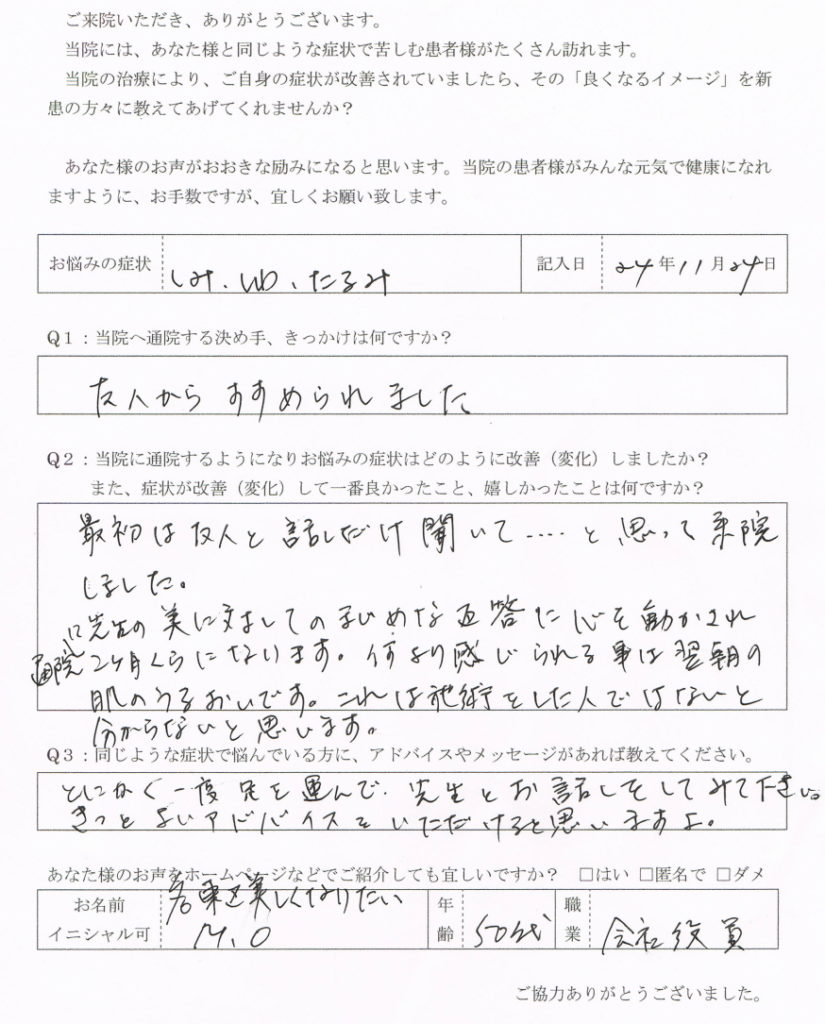 ご来院いただき、ありがとうございます。
当院には、あなた様と同じような症状で苦しむ患者様がたくさん訪れます。
当院の治療により、ご自身の症状が改善されていましたら、その「良くなるイメージ」を新
患の方々に教えてあげてくれませんか？
あなた様のお声がおおきな励みになると思います。当院の患者様がみんな元気で健康になれ
ますように、お手数ですが、宜しくお願い致します。
お悩みの症状 しみ、しわ、たるみ 記入日 24年11月24日
Q1：当院へ通院する決め手、きっかけは何ですか？
友人からすすめられました
Q2：当院に通院するようになりお悩みの症状はどのように改善（変化）しましたか？
また、症状が改善（変化）して一番良かったこと、嬉しかったことは何ですか？
最初は友人と話しだけ聞いて……と思って来院
しました。
先生の美に対してのまじめな返答に心を動かされ
通院に2ヶ月くらになります。何より感じられる事は翌朝の
肌のうるおいです。これは施術をした人ではないと
分からないと思います。
Q3：同じような症状で悩んでいる方に、アドバイスやメッセージがあれば教えてください。
とにかく一度足を運んで、先生とお話しをしてみて下さい。
きっとよいアドバイスをいただけると思いますよ。
あなた様のお声をホームページなどでご紹介しても宜しいですか？ □はい □匿名で □ダメ
お名前 名東区美しくなりたい
イニシャル可 M.O
年齢 50代
職業 会社役員
ご協力ありがとうございました。